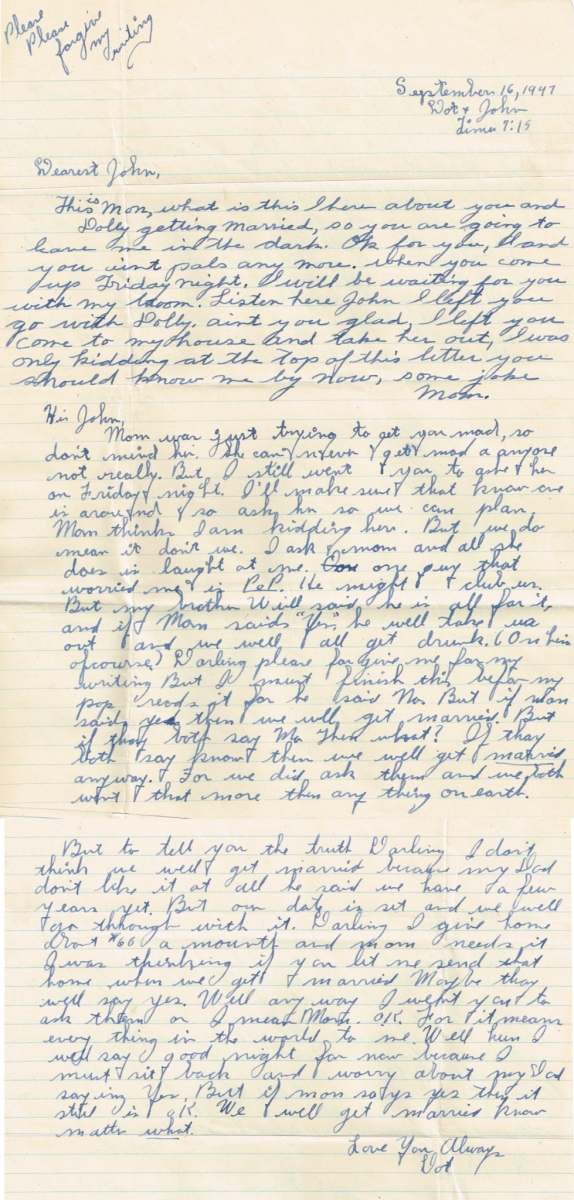 Please
Please
forgive
my
writing
September 16, 1947
Dot & John
Time 9:15
Dearest John,
This is Mom, what is this I here about you and
Dolly getting married, so you are going to
leave me in the dark. Ok for you, I and
you aint pals any more. when you come
up Friday night. I will be waiting for you
with my broom. Listen here John I left you
go with Dolly. aint you glad, I left you
come to my house and take her out, I was
only kidding at the top of this letter you
should know me by now, some joke
Mom.
Hi John,
Mom was just trying to get you mad, so
don't mind her. She can never get mad a anyone
not really. But, I still went you to ask her
on Friday night. I'll make sure that know one
is around so ask her so we can plan.
Mom thinks I am kidding her. But we do
mean it don't we. I ask mom and all she
does is laught at me. one guy that
worried me is Pop. He might club us.
But my brother Will said he is all for it,
and if Mom saids "Yes," he well take us
out and we well all get drunk. (On him
ofcourse) Darling please forgive me for my
writing But I must finish this befor my
pop reads it for he said No. But if mom
saids yes then we will get married. But
if they both say No Then what? If thay
both say know then we well get married
anyway. For we did ask them and we both
wont that more then any thing on earth.
But to tell you the truth Darling I don't
think we well get married because my Dad
don't like it at all he said we have a few
years yet. But our date is set and we well
go through with it. Darling I give home
about $60 a mounth and mom needs it
I was thinking if you let me send that
home when we get married Maybe thay
well say yes. Well any way I went you to
ask them or I mean Mom. O.K. For it means
every thing in the world to me. Well hun I
well say good night for now because I
must sit back and worry about my Dad
saying Yes. But if mom says yes then it
still is O.K. We well get married know
matter what.
Love You Always
Dot